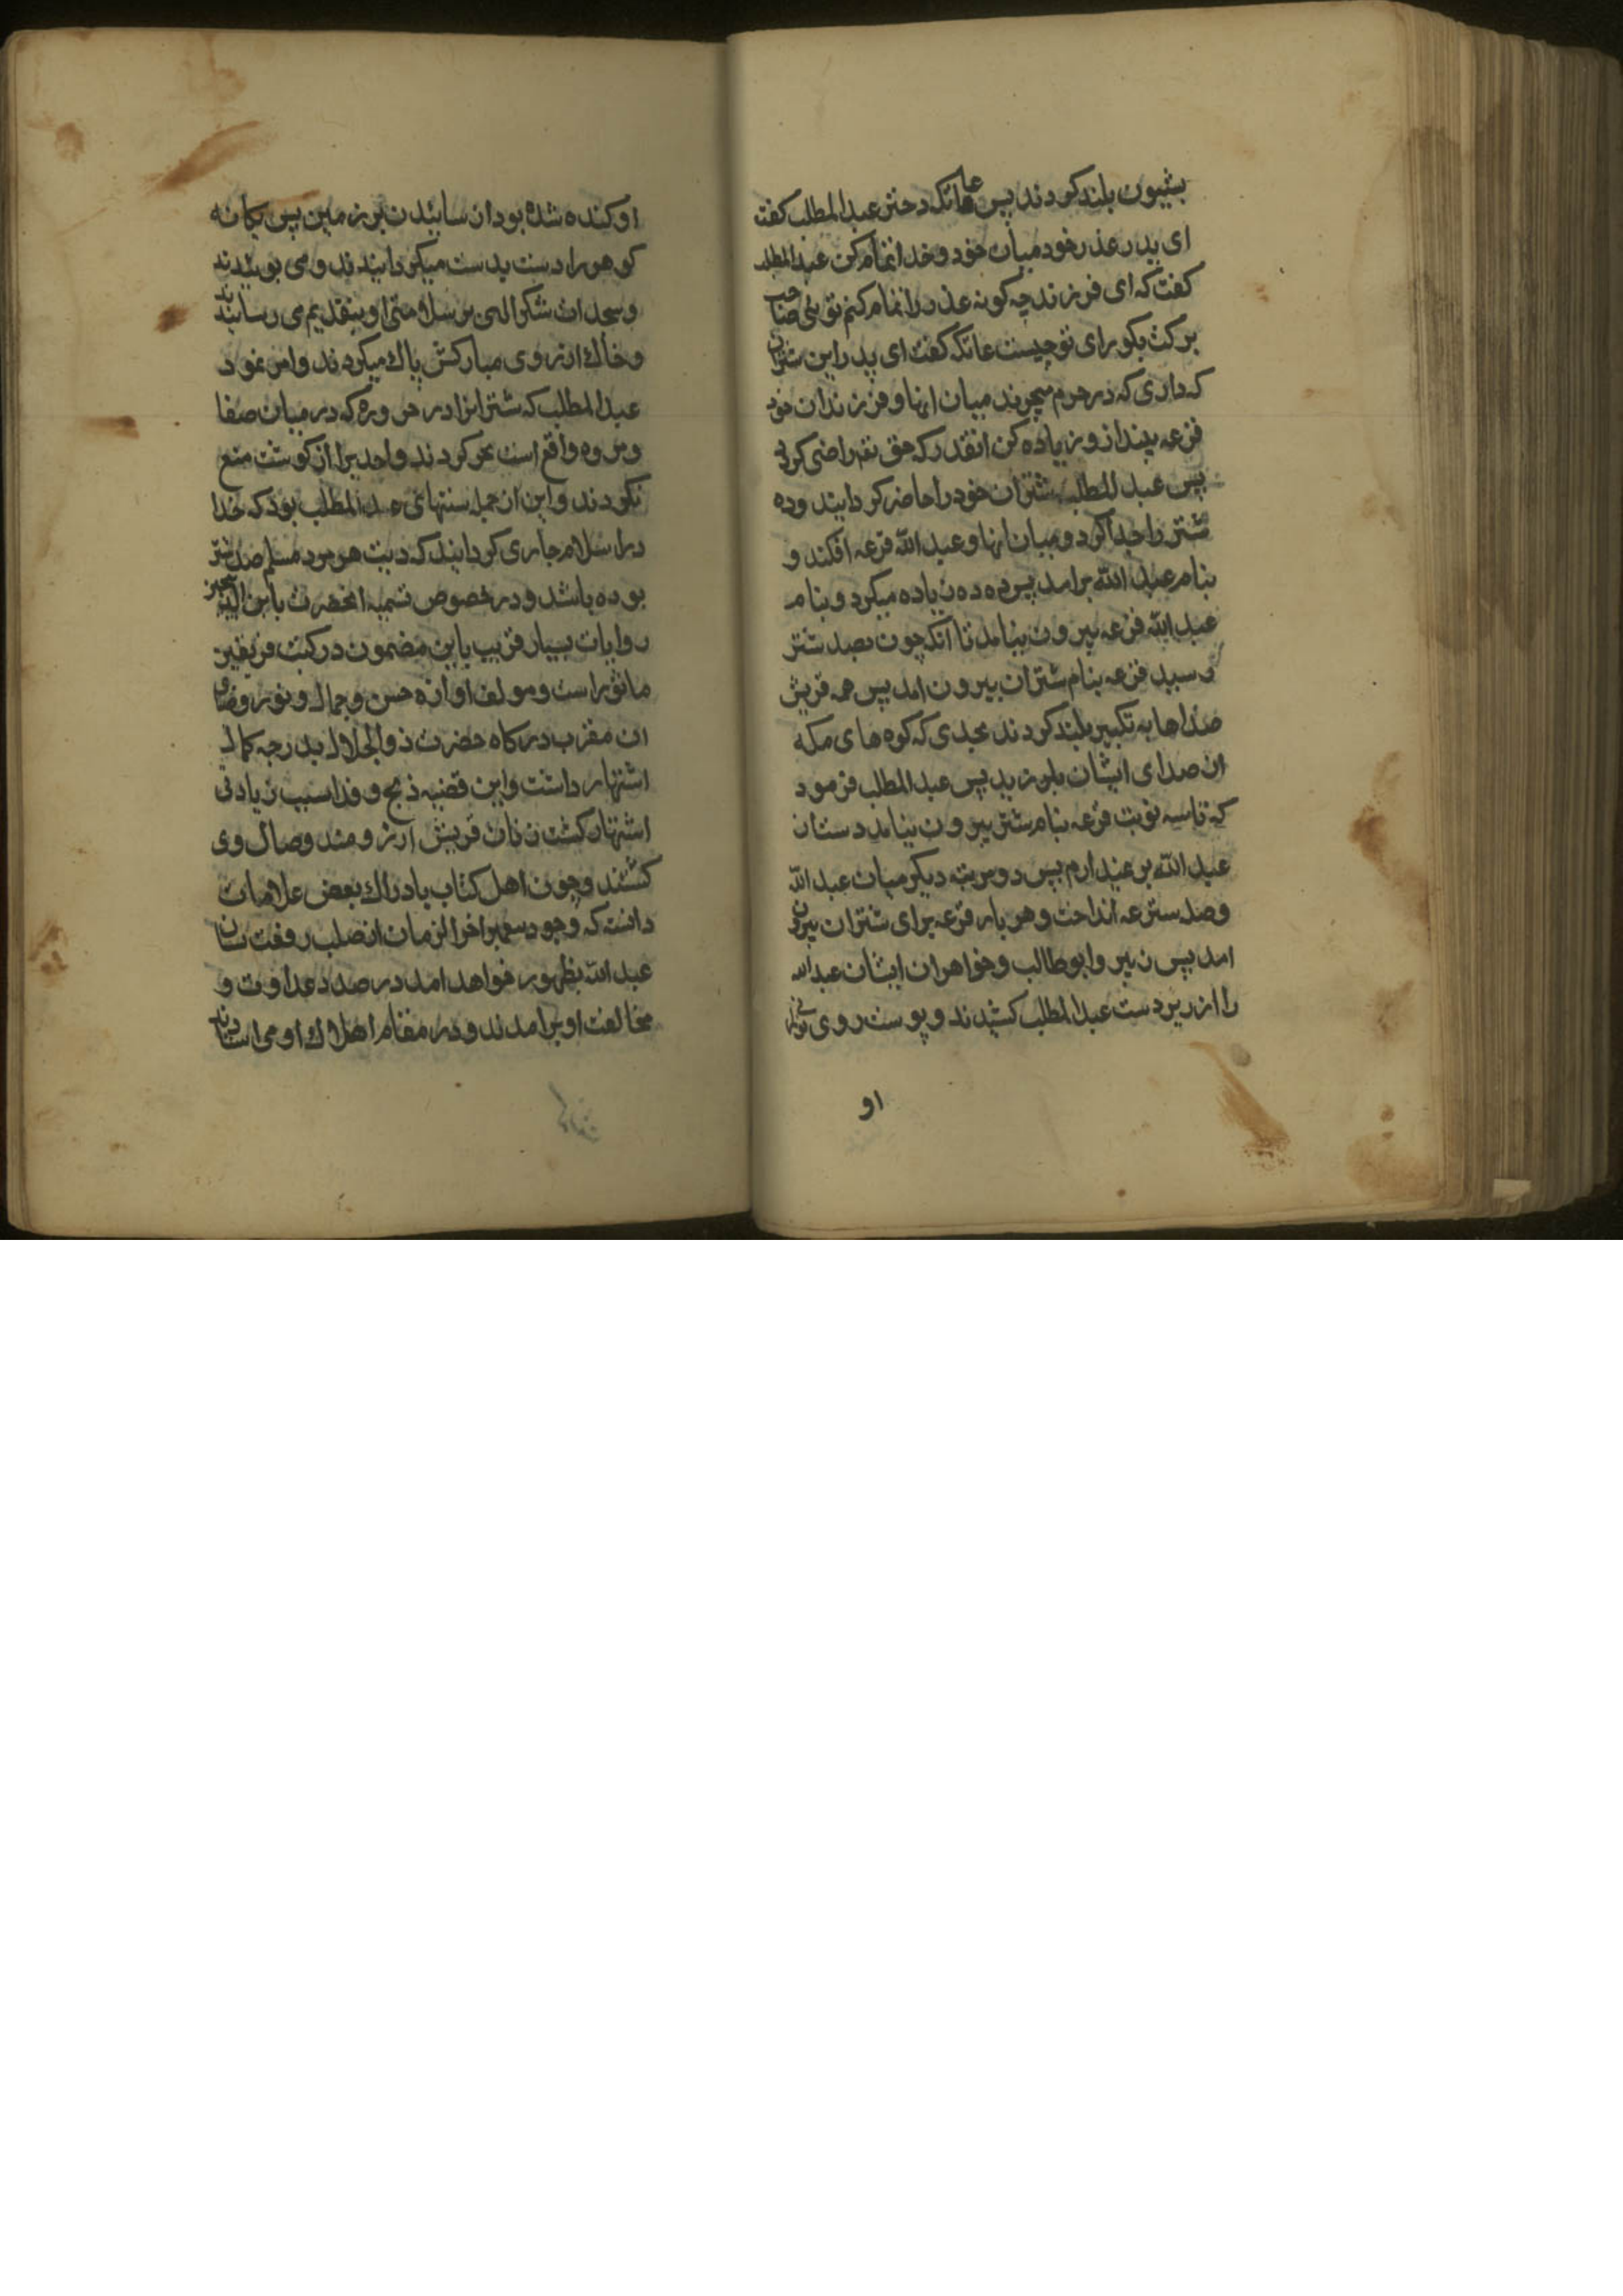 بشیون بلند کردند پس عاتکه دختر عبدالمطلب کفت
ای پدر عذر خود میان خود و خدا تمام کن عبدالمطلب
کفت که ای فرزند چه کونه عذر را تمام کنم تویی صاحب
برکت بکو رای تو چیست عاتکه کفت ای پدر این شتران
که داری که در حرم میچرند میان انها و فرزندان خود
قرعه بینداز و زیاده کن انقدر که حق تعه راضی کردد
پس عبدالمطلب شتران خود را حاضر کردانید و ده
شتر را جدا کرد و میان انها و عبد الله قرعه افکند و
بنام عبد الله برامد پس ده ده زیاده میکرد و بنام
عبد الله قرعه بیرون میامد تا آنکه چون بصد شتر
رسید قرعه بنام شتران بیرون امد پس همه قریش
صداها به تکبیر بلند کردند بحدی که کوه های مکه
از صدای ایشان بلرزید پس عبدالمطلب فرمود
که تا سه نوبت قرعه بنام شتر بیرون نیاید دست از
عبد الله بر نمیدارم پس دو مرتبه دیکر میان عبد الله
و صد شتر قرعه انداخت و هر بار قرعه برای شتران بیرون
امد پس زبیر و ابوطالب و خواهران ایشان عبد الله
را از زیر دست عبدالمطلب کشیدند و پوست روی نورانی
او
او کنده شده بود از سائیدن بر زمین پس یکانه
کوهر را دست بدست میکردانیدند و می بوئیدند
و سجدات شکر الهی بر سلامتی او بتقدیم می رسانیدند
و خاک از روی مبارکش پاک میکردند و امر نمود
عبدالمطلب که شتران را در حزوره که در میان صفا
و مروه واقع است نحر کردند و احدیرا از کوشت منع
نکردند و این از جمله سنتهای عبدالمطلب بود که خدا
در اسلام جاری کردانید که دیت هر مرد مسلم صد شتر
بوده باشد و در خصوص تسمیه انحضرت بابن الذبیحین
روایات بسیار قریب باین مضمون در کتب فریقین
ماثور است و مولف اوازه حسن و جمال و نور و ضیای
ان مقرب درکاه حضرت ذوالجلال بدرجه کمال
اشتهار داشت و این قضیه ذبح و فدا سبب زیادتی
اشتهار کشت زنان قریش ارزومند وصال وی
کشتند و چون اهل کتاب بادراک بعض علامات
دانستند که وجود پیغمبر اخرالزمان از صلب رفعت نشان
عبد الله بظهور خواهد امد در صدد عداوت و
مخالفت او برامدند و در مقام اهلاک او می استادند